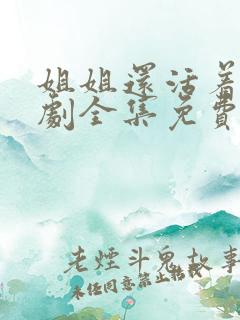 姐姐還活着
劇全集免費
老煙斗鬼故事
未任同意禁止轉載